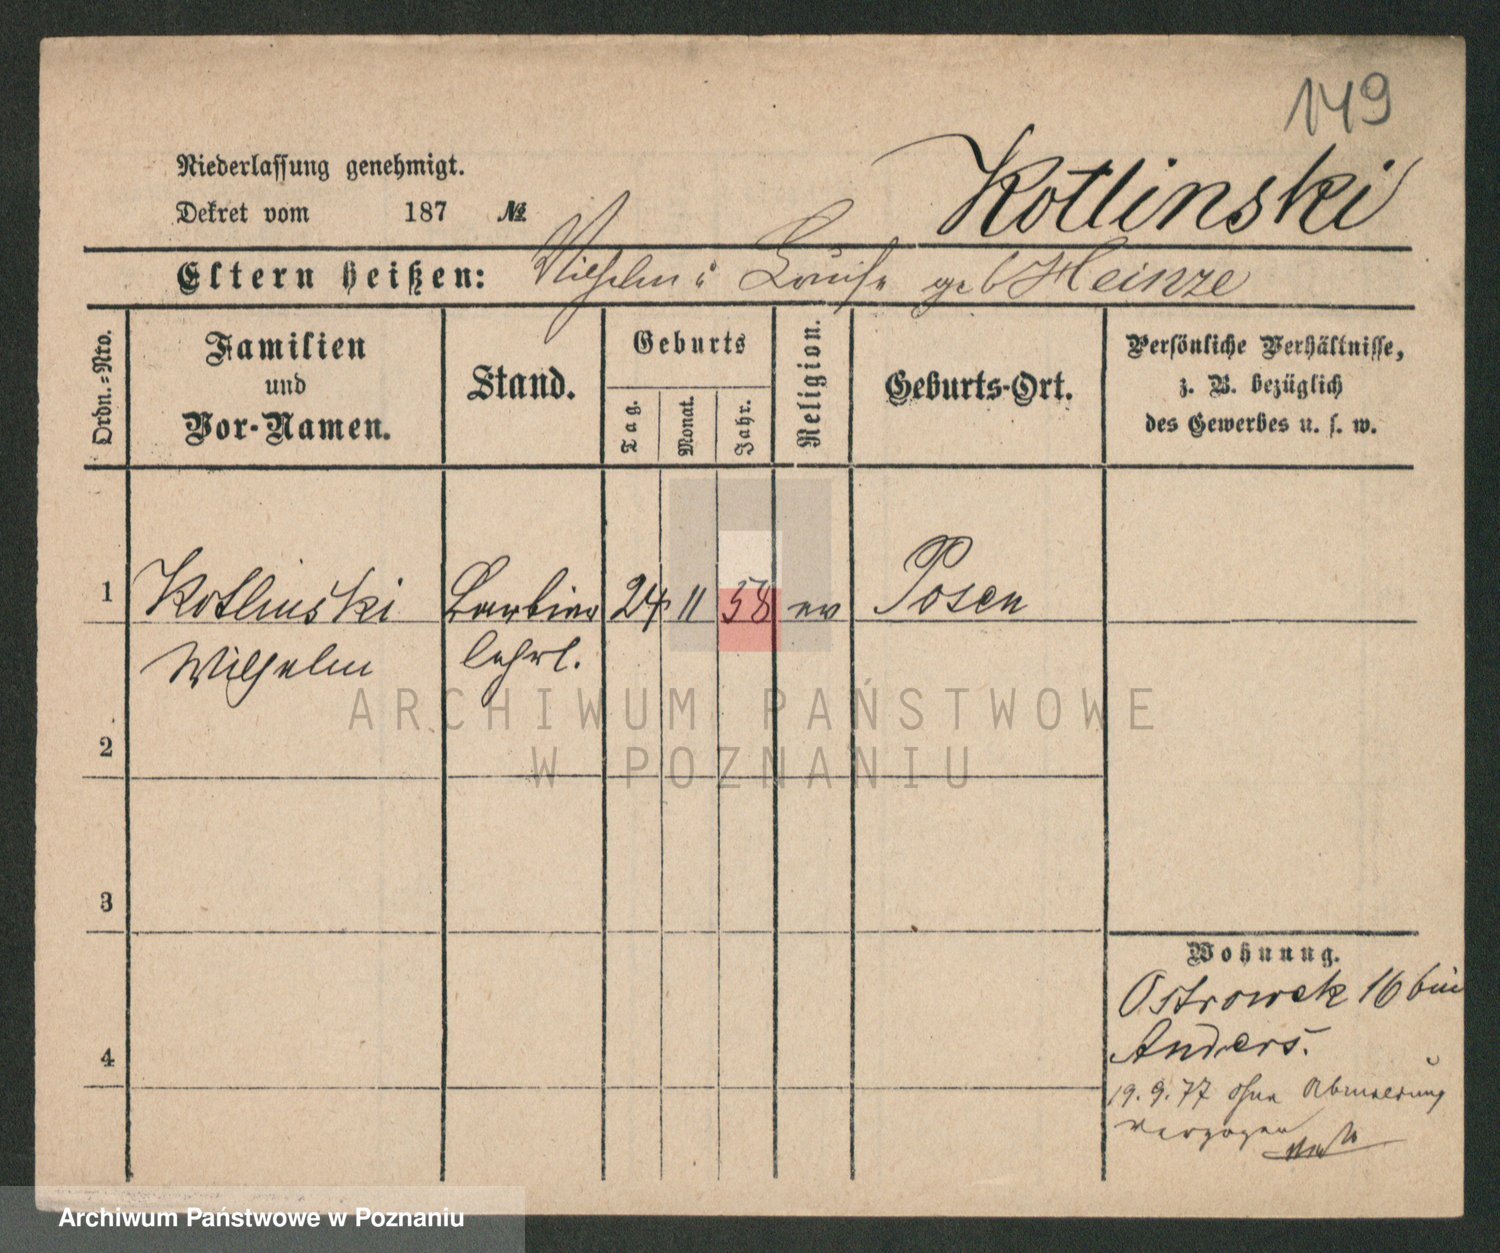 149
Niederlassung genehmigt.
Dekret vom 187 №
Kotlinski
Eltern heißen: Wilhelm u Louise geb Heinze
Ordn.=Nro.
Familien
und
Vor-Namen.
Stand.
Geburts
Tag.
Monat.
Jahr.
Religion.
Geburts-Ort.
Persönliche Verhältnisse,
z. B. bezüglich
des Gewerbes u. s. w.
1 Kotlinski Barbier 24 11 58 ev Posen
Wilhelm lehrl.
2
3
4
Wohnung.
Ostrowek 16 bei
Anders.
19.9.77 ohne Abmeldung
verzogen
ARCHIWUM PAŃSTWOWE
W POZNANIU
Archiwum Państwowe w Poznaniu